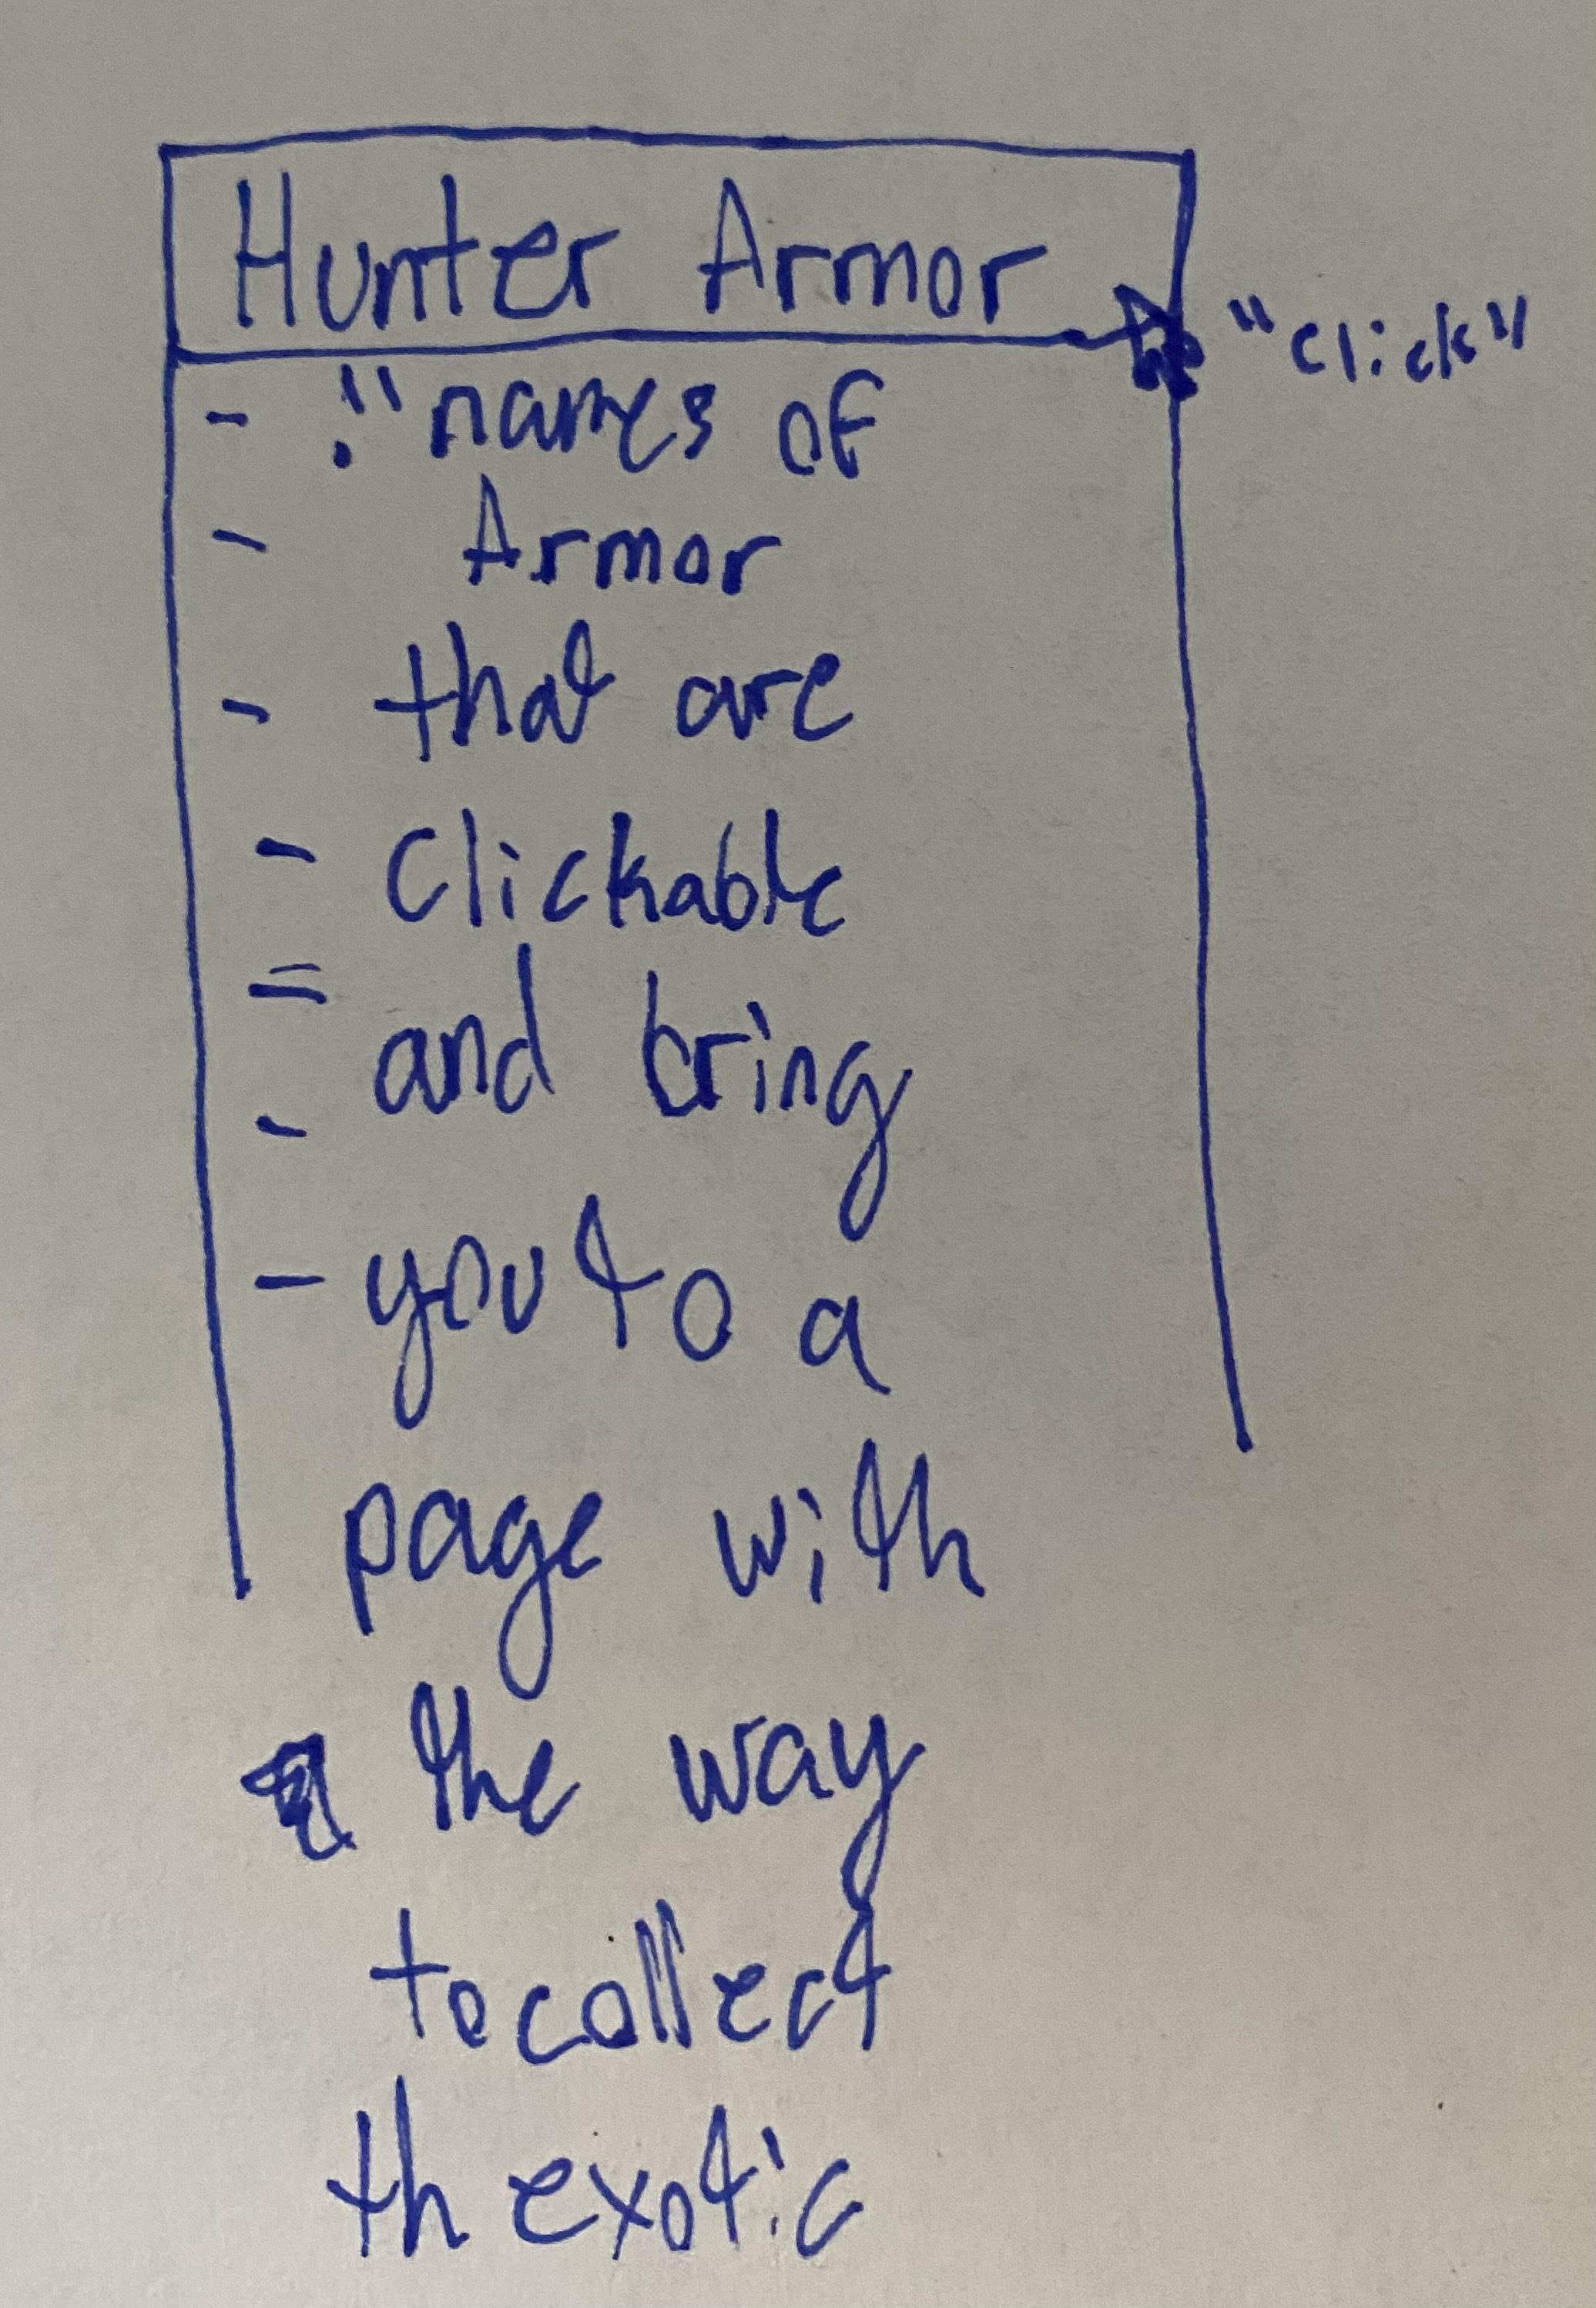 Hunter Armor
"click"
- "names of
- Armor
- that are
- Clickable
= and bring
-
- you to a
page with
the way
to collect
th exotic